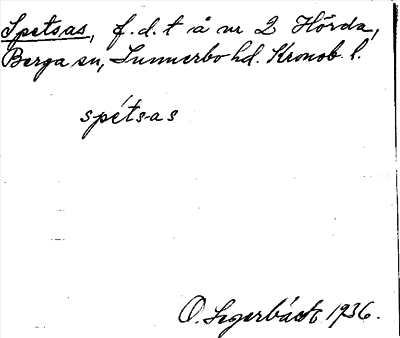 Spetsas, f.d.t å nr 2 Hörda,
Berga sn, Sunnerbo hd. Kronob. l.
spétsas
O. Segerbäck 1936.